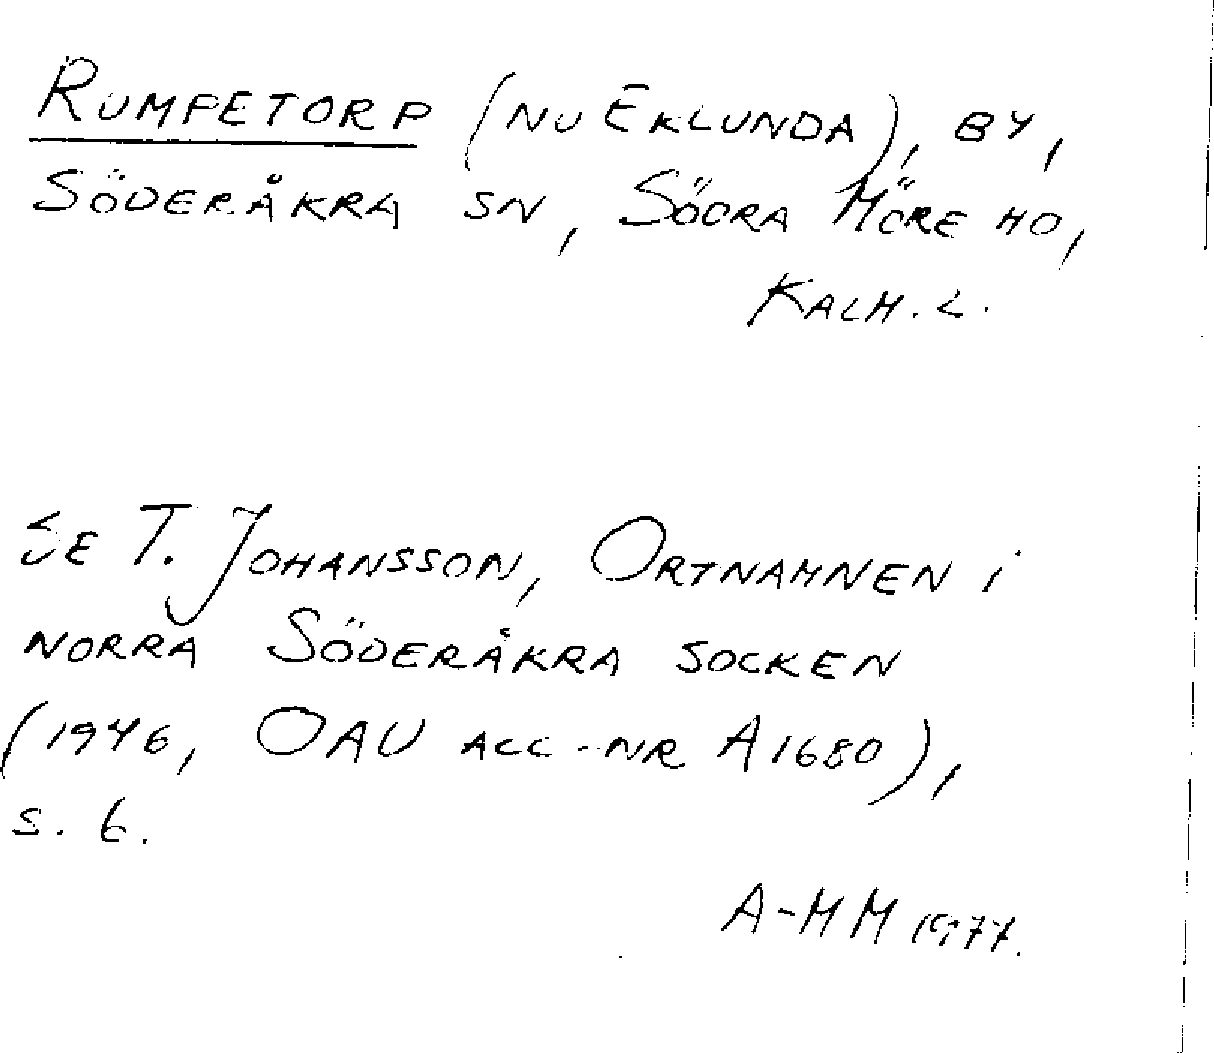 RUMPETORP (NU EKLUNDA), BY,
SÖDERÅKRA SN, SÖDRA MÖRE HD,
KALM. L.
SE T. JOHANSSON, ORTNAMNEN i
NORRA SÖDERÅKRA SOCKEN
(1946, OAU ACC.-NR A1680),
S. 6.
A-MM 1977.